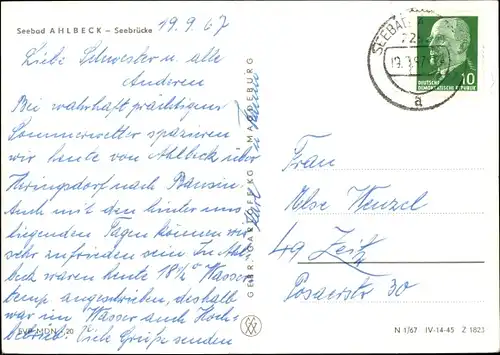 Seebad AHLBECK – Seebrücke
19.9.67
Liebe Schwester u. alle
Anderen
Bei wahrhaft prächtigem
Sommerwetter spazieren
wir heute von Ahlbeck über
Heringsdorf nach Bansin.
Auch mit den hinter uns
liegenden Tagen können wir
sehr zufrieden sein. In Ahl-
beck waren heute 18½° Wasser
temp angeschrieben, deshalb
war im Wasser auch Hoch-
betrieb. Viele Grüße senden
Karl u
EVP MDN -20
GEBR. GARLOFF KG MAGDEBURG
SEEBAD
19.9.67
a
10
DEUTSCHE
DEMOKRATISCHE REPUBLIK
Frau
Else Wenzel
49 Zeitz
Posaerstr 30
N 1/67 IV-14-45 Z 1823